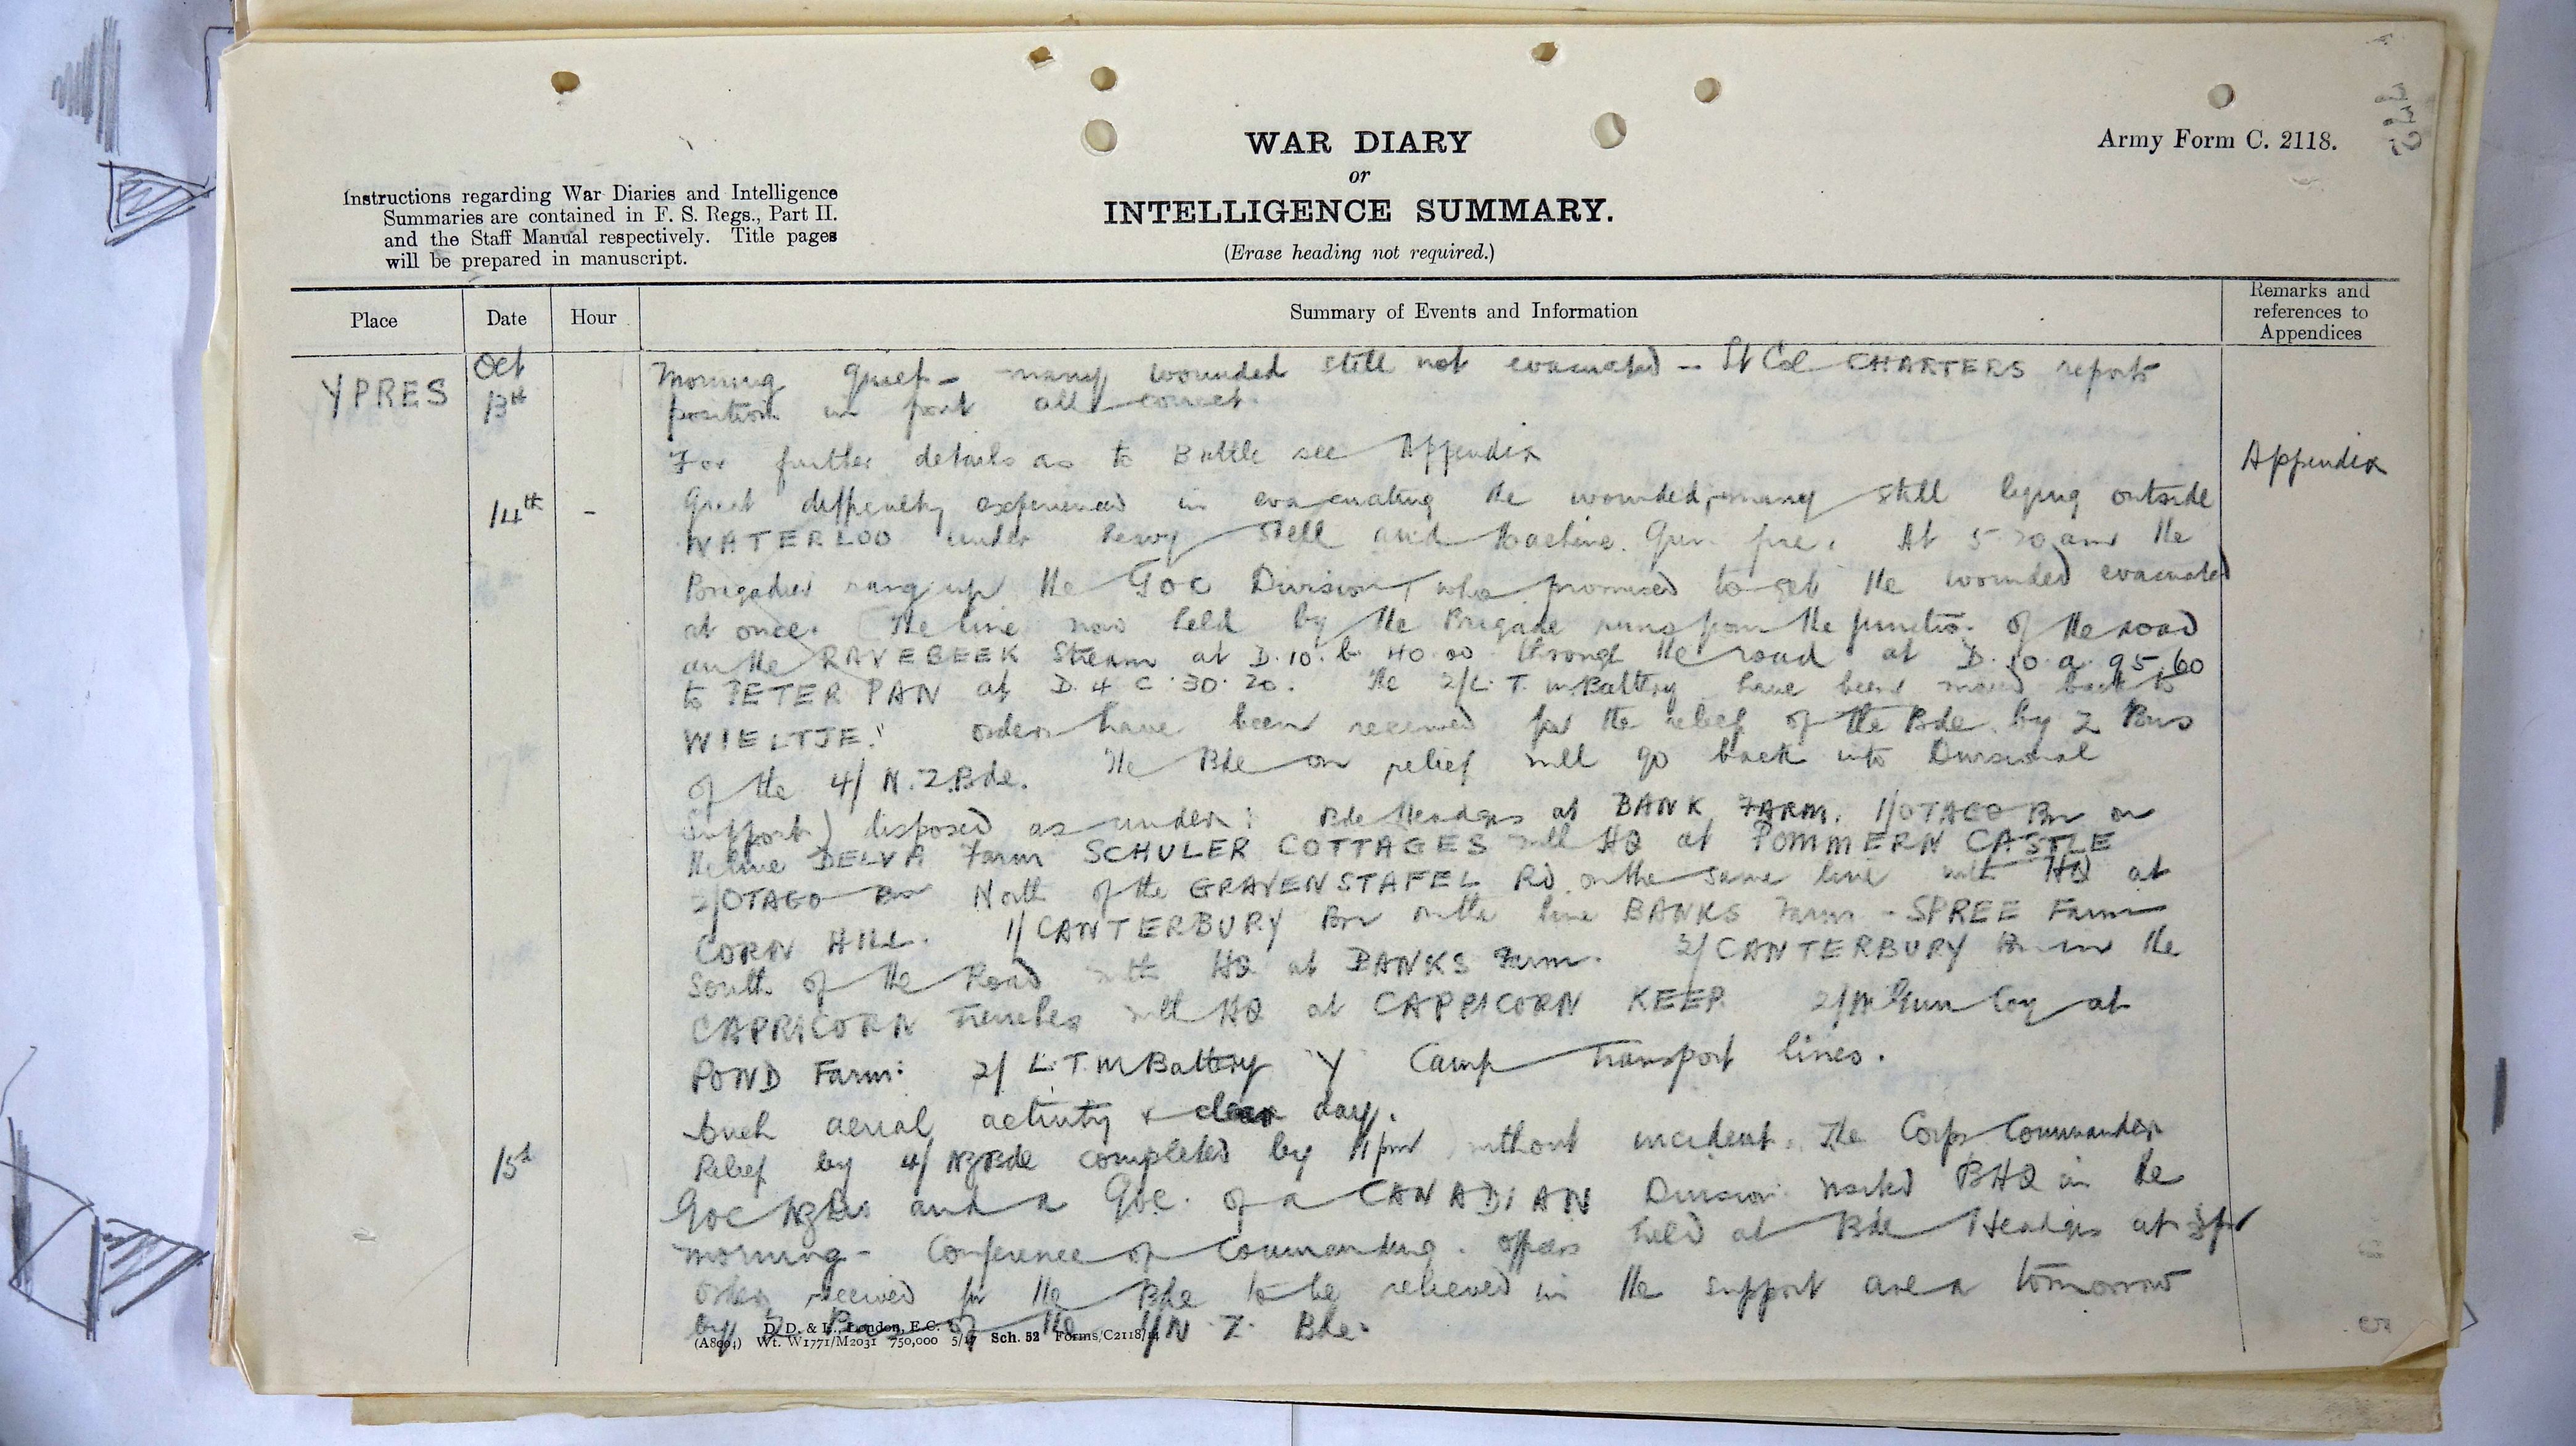 WAR DIARY
or
INTELLIGENCE SUMMARY.
(Erase heading not required.)
Army Form C. 2118.
Instructions regarding War Diaries and Intelligence
Summaries are contained in F. S. Regs., Part II.
and the Staff Manual respectively. Title pages
will be prepared in manuscript.
Place
Date
Hour
Summary of Events and Information
Remarks and
references to
Appendices
YPRES
Oct
13th
Morning quiet - many wounded still not evacuated - Lt Col CHARTERS reports
position in front all correct.
For further details as to Battle see Appendix
Appendix
14th -
Great difficulty experienced in evacuating the wounded, many still lying outside
WATERLOO under heavy shell and Machine Gun fire. At 5 30 am the
Brigadier rang up the GOC Division, who promised to get the wounded evacuated
at once. The line now held by the Brigade runs from the junction of the road
an the RAVEBEEK Stream at D.10.b.40.00 through the road at D.10.a.95.60
to PETER PAN at D.4.C.30.20. The 2/L.T.M Battery have been moved back to
WIELTJE. Orders have been received for the relief of the Bde by 2 Bns
of the 4/ N.Z.Bde. The Bde on relief will go back into Divisional
support) disposed as under: Bde Headqrs at BANK FARM. 1/OTAGO Bn on
the line DELVA Farm SCHULER COTTAGES with HQ at POMMERN CASTLE
2/OTAGO Bn North of the GRAVENSTAFEL Rd on the same line with HQ at
CORN HILL. 1/CANTERBURY Bn on the line BANKS Farm - SPREE Farm
South of the Road with HQ at BANKS Farm. 2/CANTERBURY Bn in the
CAPRICORN Trenches with HQ at CAPRICORN KEEP 2/M Gun Coy at
POND Farm: 2/ L.T.M Battery Y Camp Transport lines.
Much aerial activity & clear day.
15th
Relief by 4/ NZBde completed by 11pm without incident. The Corps Commander
GOC NZDiv and a GOC. of a CANADIAN Division visited BHQ in the
morning - Conference of Commanding officers held at Bde Headqrs at
Orders received for the Bde to be relieved in the support area tomorrow
by 2 Bns of the N.Z. Bde.
D. D. & L., London, E.C.
(A8004) Wt. W1771/M2031 750,000 5/17 Sch. 52 Forms/C2118/14